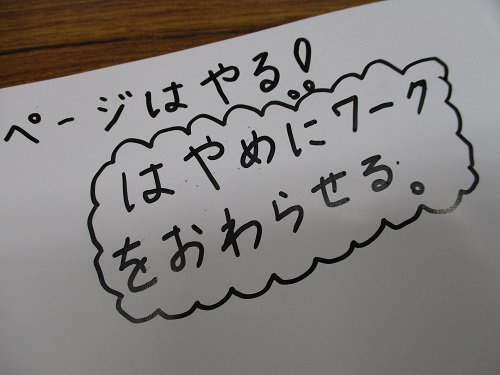 ページはやる!
はやめにワーク
をおわらせる。